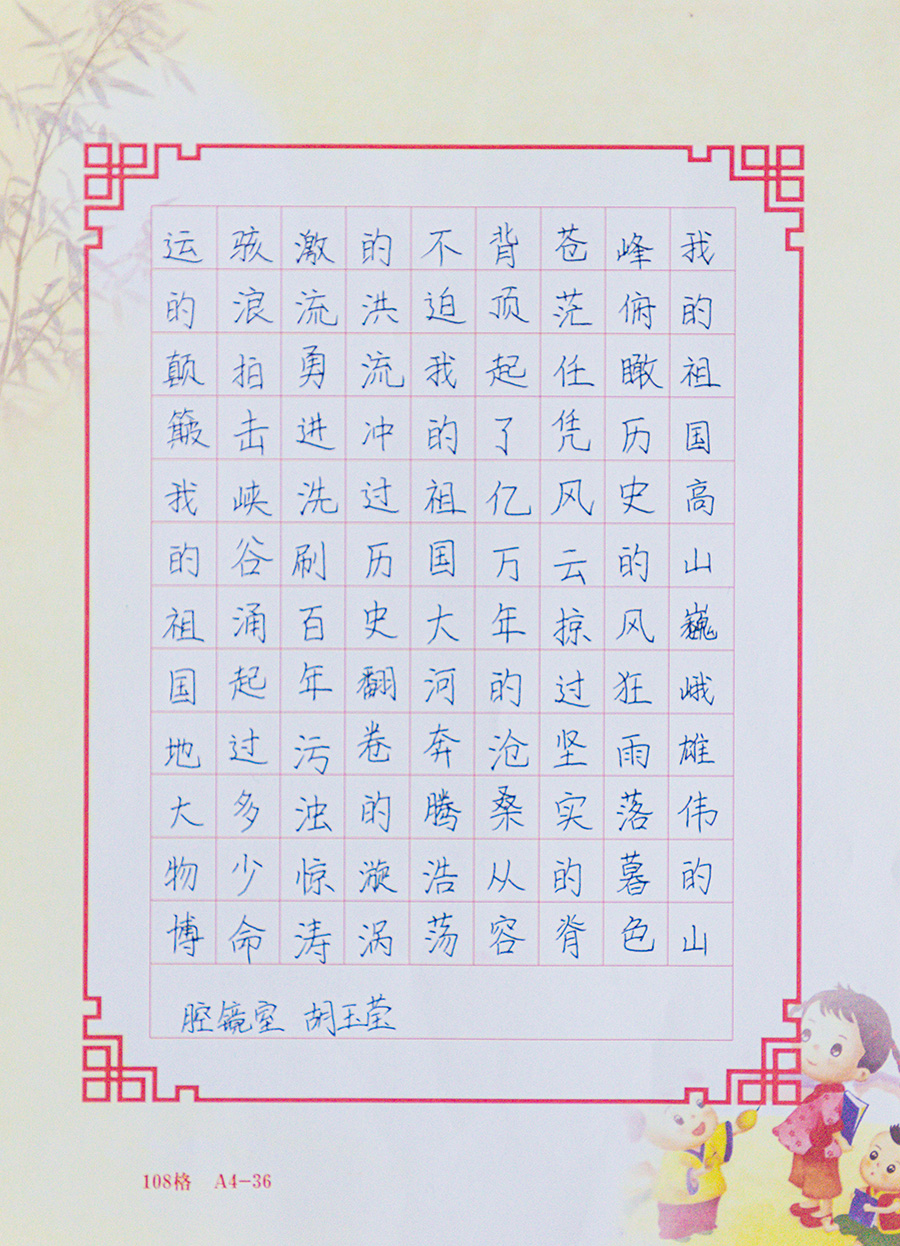 我的祖国高山巍峨雄伟的山
峰俯瞰历史的风狂雨落暮色
苍茫任凭风云掠过坚实的脊
背顶起了亿万年的沧桑从容
不迫我的祖国大河奔腾浩荡
的洪流冲过历史翻卷的漩涡
激流勇进洗刷百年污浊惊涛
骇浪拍击峡谷涌起过多少命
运的颠簸我的祖国地大物博
腔镜室 胡玉莹
108格 A4-36